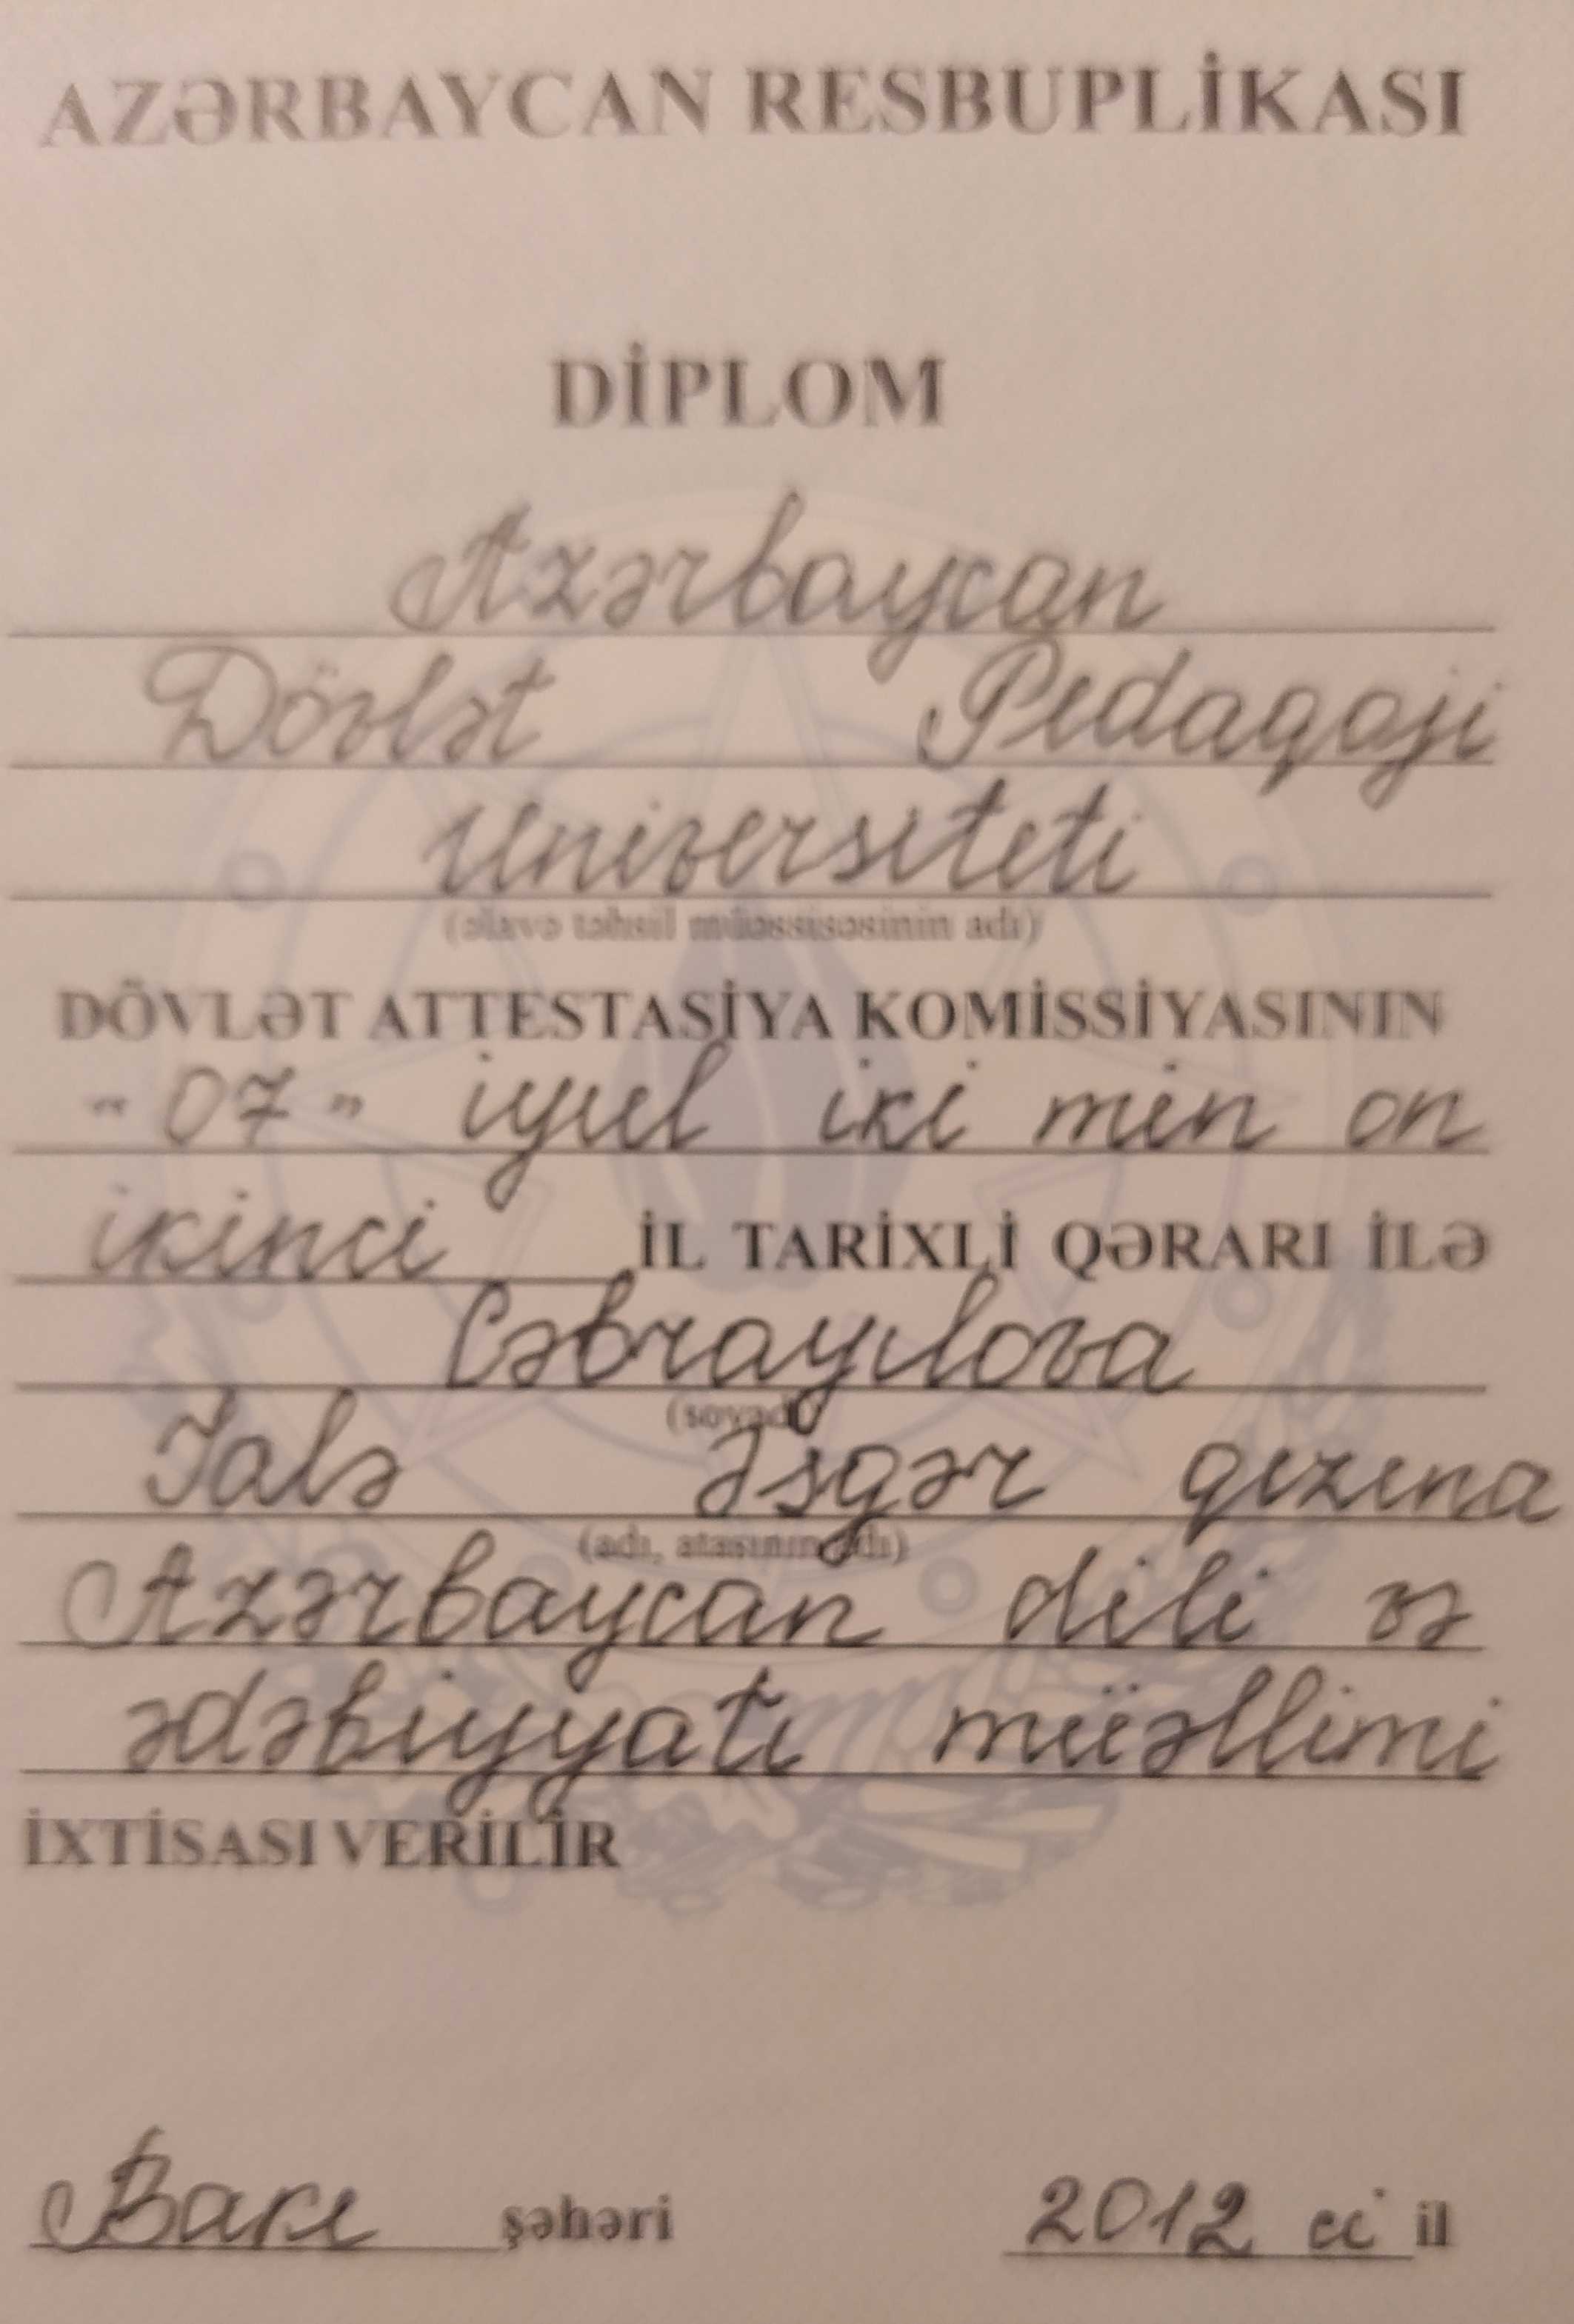 AZƏRBAYCAN RESBUPLİKASI
DİPLOM
Azərbaycan
Dövlət Pedaqoji
Universiteti
(əlavə təhsil müəssisəsinin adı)
DÖVLƏT ATTESTASİYA KOMİSSİYASININ
"07" iyul iki min on
ikinci İL TARİXLİ QƏRARI İLƏ
Cəbrayılova
(soyadı)
Jalə Əsgər qızına
(adı, atasının adı)
Azərbaycan dili və
ədəbiyyatı müəllimi
İXTİSASI VERİLİR
Bakı şəhəri 2012 ci il